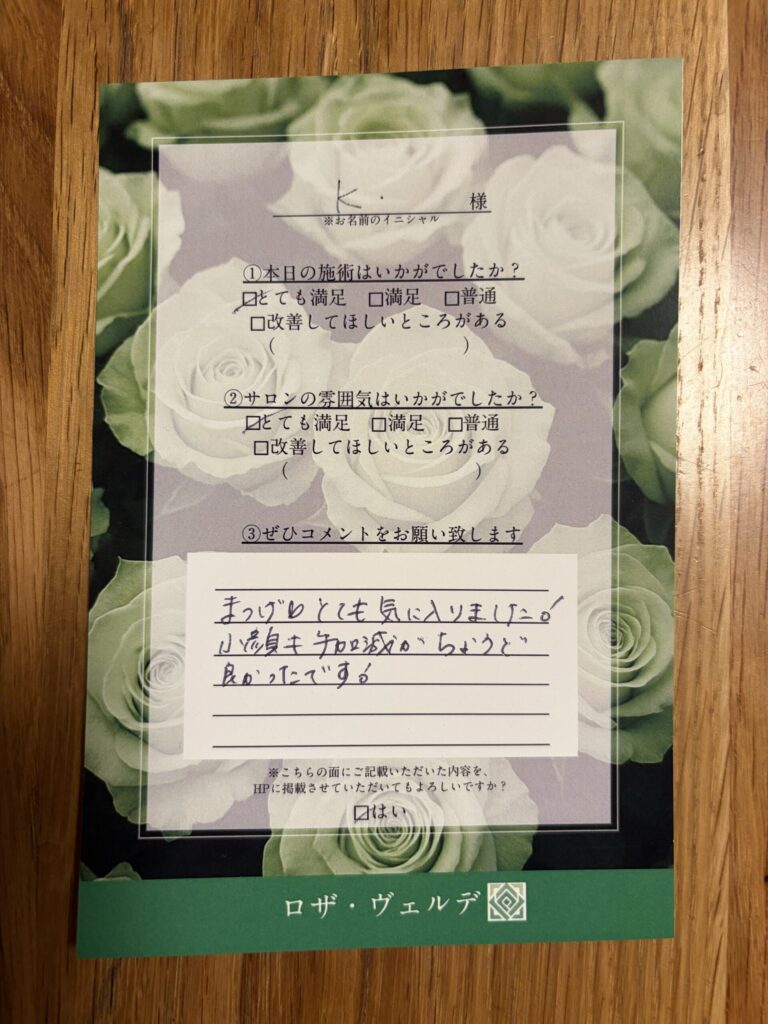 K. 様
※お名前のイニシャル
①本日の施術はいかがでしたか?
☑とても満足 □満足 □普通
□改善してほしいところがある
( )
②サロンの雰囲気はいかがでしたか?
☑とても満足 □満足 □普通
□改善してほしいところがある
( )
③ぜひコメントをお願い致します
まつげもとても気に入りました!
小顔も加減がちょうど
良かったです!
※こちらの面にご記載いただいた内容を、
HPに掲載させていただいてもよろしいですか?
☑はい
ロザ・ヴェルデ